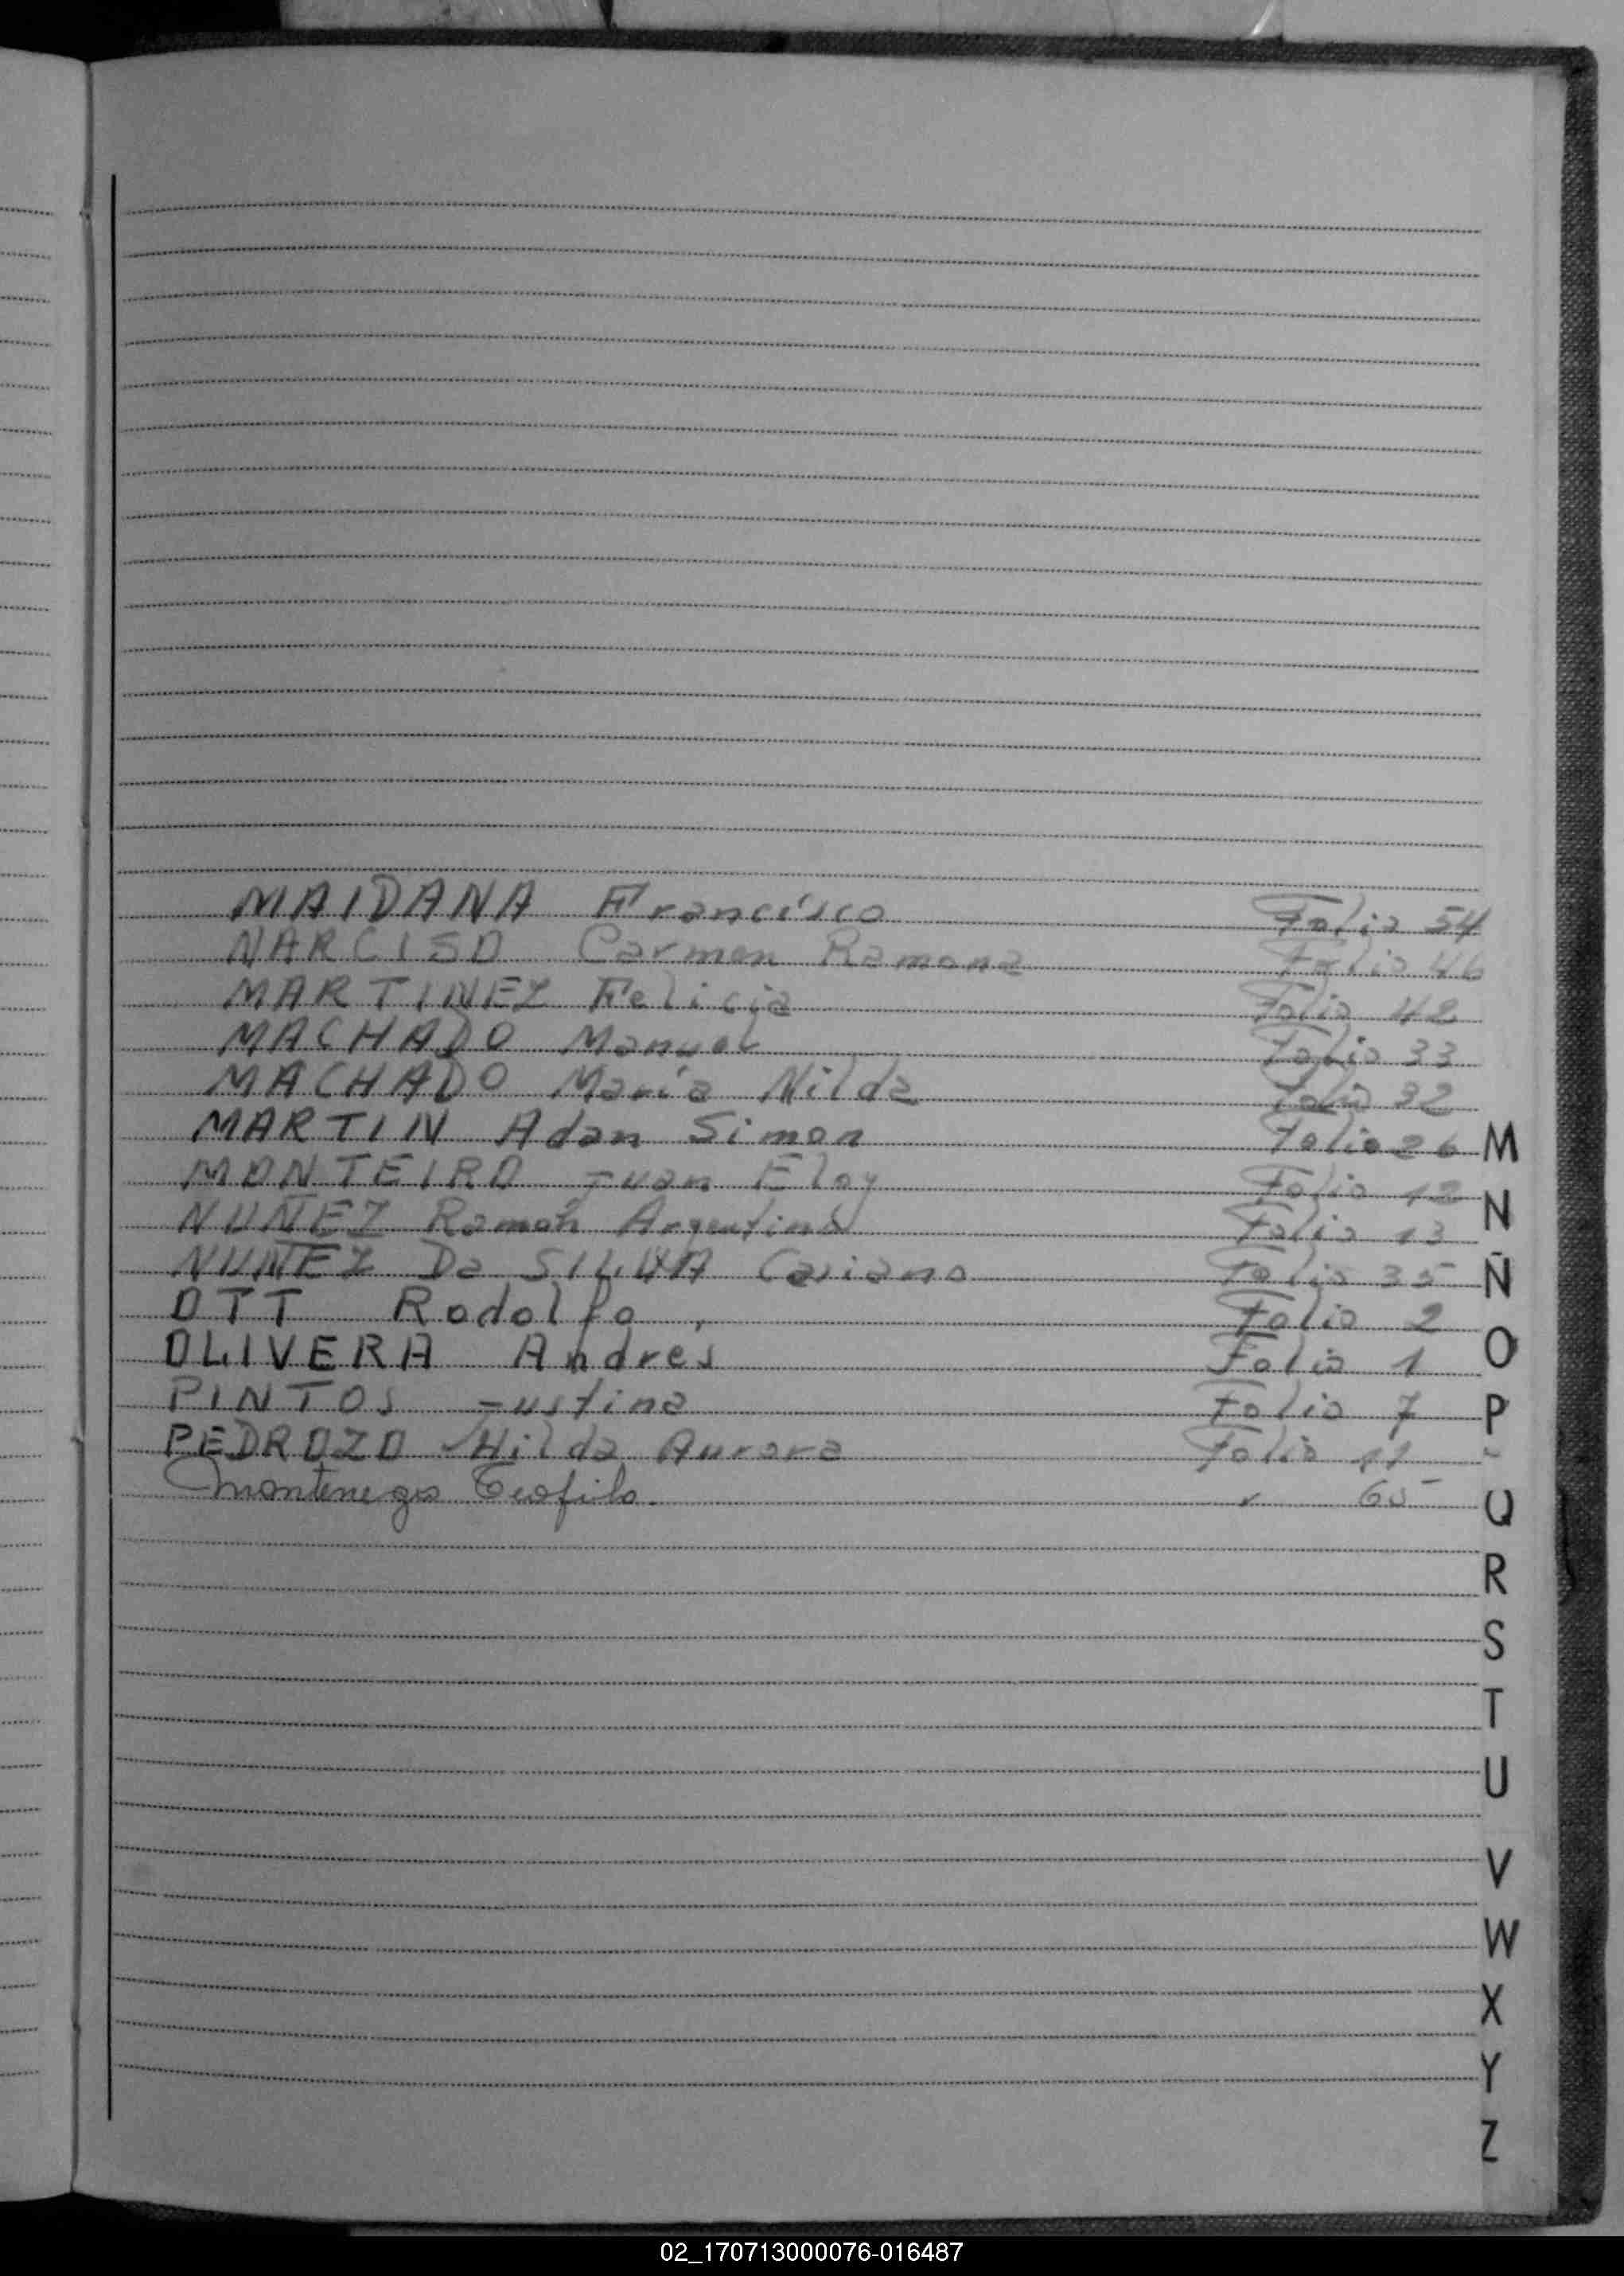 MAIDANA Francisco Folio 54
NARCISO Carmen Ramona Folio 46
MARTINEZ Felicia Folio 42
MACHADO Manuel Folio 33
MACHADO María Nilda Folio 32
MARTIN Adan Simon Folio 26
MONTEIRO Juan Eloy Folio 12
NUÑEZ Ramón Argentino Folio 13
NUÑEZ Da SILVA Casiano Folio 35
OTT Rodolfo, Folio 2
OLIVERA Andres Folio 1
PINTOS Justina Folio 7
PEDROZO Hilda Aurora Folio 11
Montenegro Teofilo 65
M
N
Ñ
O
P
Q
R
S
T
U
V
W
X
Y
Z
02_170713000076-016487